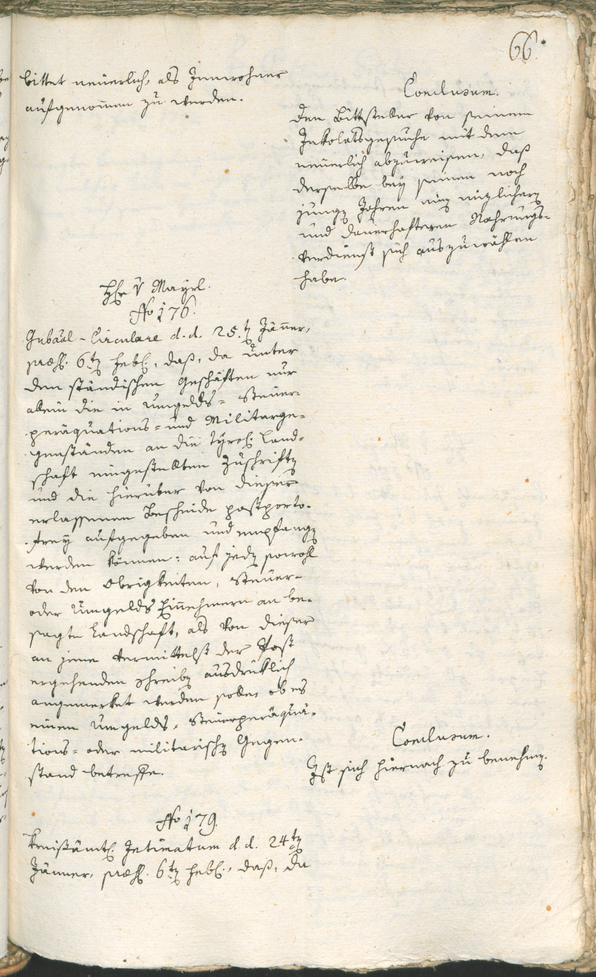 66.
bittet neuerlich, als Innwohner
aufgenommen zu werden.
Conclusum.
Den Bittsteller von seinem
Inkolatsgesuche mit dem
neuerlich abzuweisen, daß
derselbe bey seinen noch
jungen Jahren einen nüzlichern
und dauerhafteren Nahrungs-
verdienst sich auszuwählen
habe.
Hr v Mayrl.
No 176.
Gubal-Circulare d. d. 25ten Jänner,
præs. 6ten Febr., daß, da unter
den ständischen Geschäften nur
allein die in Umgelds- Steuer-
peräquations- und Militärge-
genständen an die tyrol. Land-
schaft eingestellten Zuschriften
und die hierüber von dieser
erlassenen Bescheide postporto-
frey aufgegeben und empfangen
werden können: auf jeden sowohl
von den Obrigkeiten, Steuer-
oder Umgelds Einnehmern an be-
sagte Landschaft, als von dieser
an jene vermittelst der Post
ergehenden Schreiben ausdrüklich
angemerket werden solle, ob es
einen Umgelds, Steuerperäqua-
tions- oder militarischen Gegen-
stand betreffe.
Conclusum.
Ist sich hiernach zu benehmen.
No 179.
Kreisämtl. Intimatum d. d. 24ten
Jänner, præs. 6ten Febr., daß, da